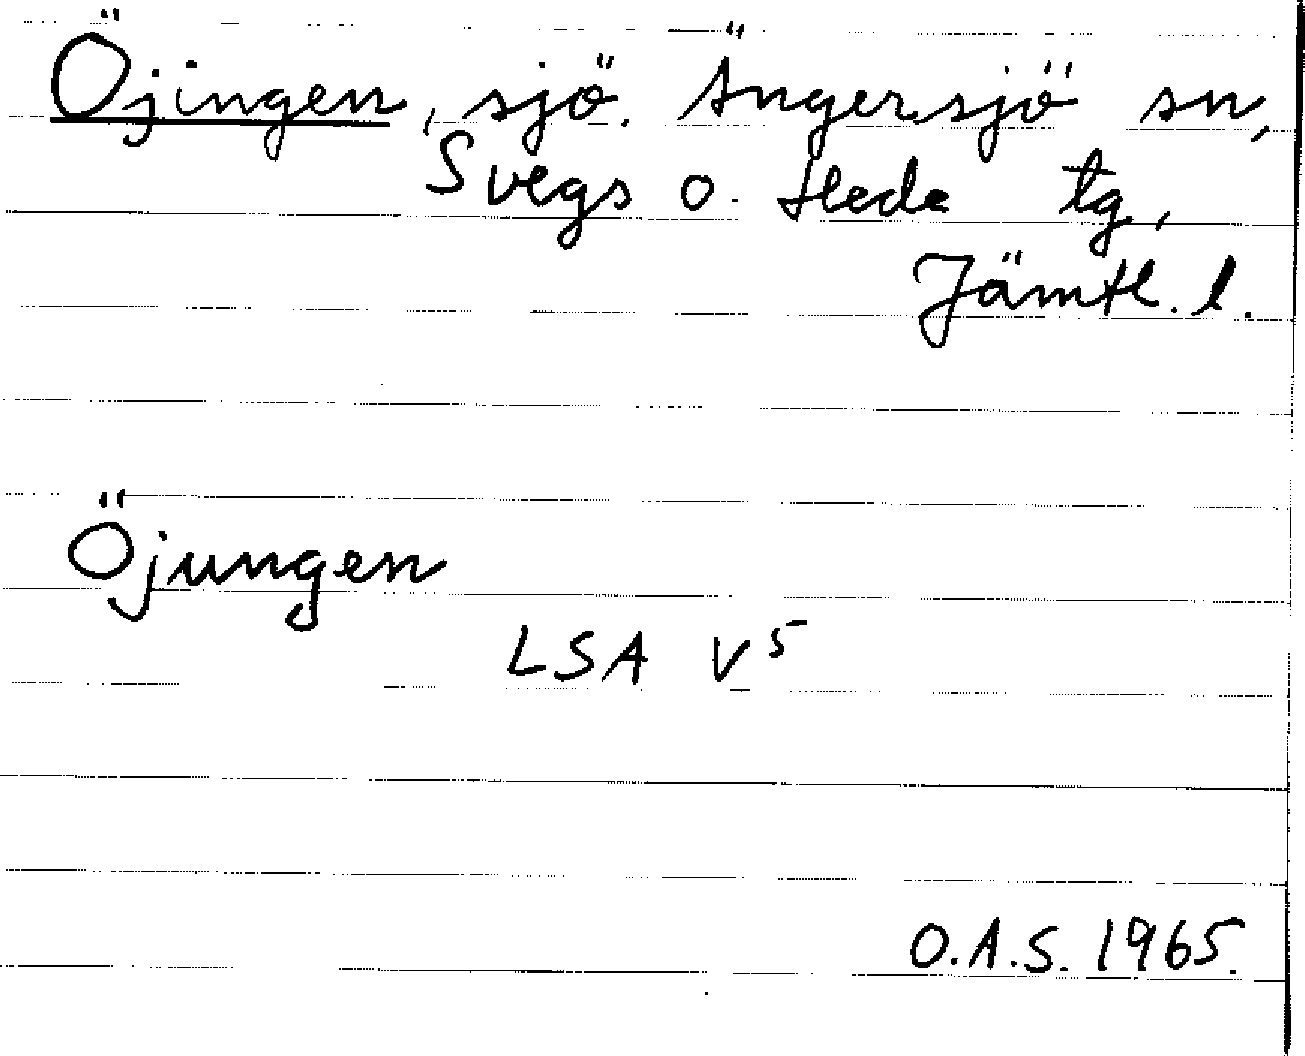 Öjingen, sjö. Ängersjö sn,
Svegs o. Hede tg,
Jämtl. l.
Öjungen
LSA V5
O.A.S. 1965.